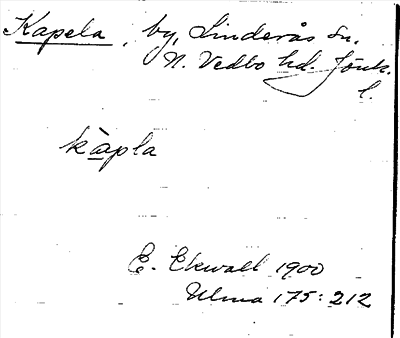 Kapela, by, Linderås sn,
N. Vedbo hd. Jönk.
l.
kàpla
E. Ekwall 1900
Ulma 175:212